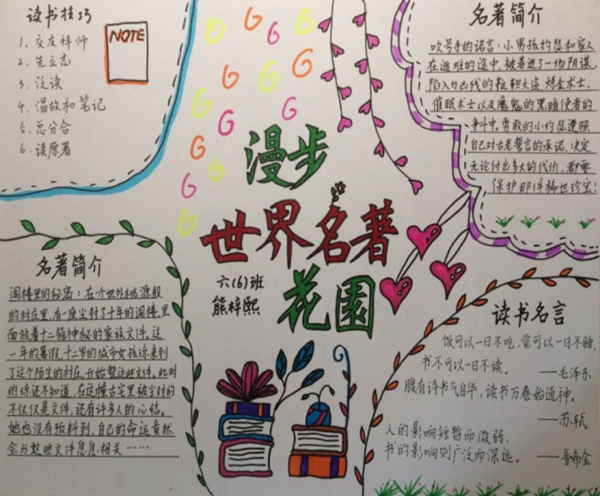 读书技巧
NOTE
1、交在祥师
2、先立志
3、泛读
4、温故和笔记
5、总分合
6、读原著
漫步
世界名著
花園
六(6)班
熊梓熙
名著简介
吹号手的诺言:小男孩约瑟和家人
在逃难的途中,被卷进了一场阴谋,
陷入行出线的鞑靼大盗、炼金术士、
催眠术士以及魔鬼的黑暗使者的
争斗中。勇敢的小约瑟遵照
自己对古老誓言的承诺,决定
无论付出多大的代价,都要
保护那件稀世珍宝!
名著简介
阁楼里的秘密:在一个世外桃源般
的村庄里,有一座尘封了十年的阁楼,里
面放着十二箱神秘的家族文件。这
一年的暑假,十二岁的城市女孩谅来到
了这个陌生的村庄,开始整这些文件。此时
的谅还不知道,在这幢古宅里被尘封的
不仅仅是文件,还有许多人的心结。
她也没有预料到,自己的命运竟然
会与这些文件息息相关……
读书名言
饭可以一日不吃,觉可以一日不睡,
书不可以一日不读。
——毛泽东
腹有诗书气自华,读书万卷始通神。
——苏轼
人的影响短暂而微弱,
书的影响则广泛而深远。
——普希金